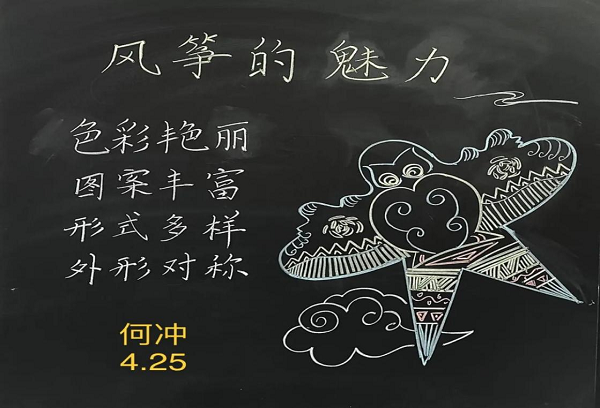 风筝的魅力
色彩艳丽
图案丰富
形式多样
外形对称
何冲
4.25